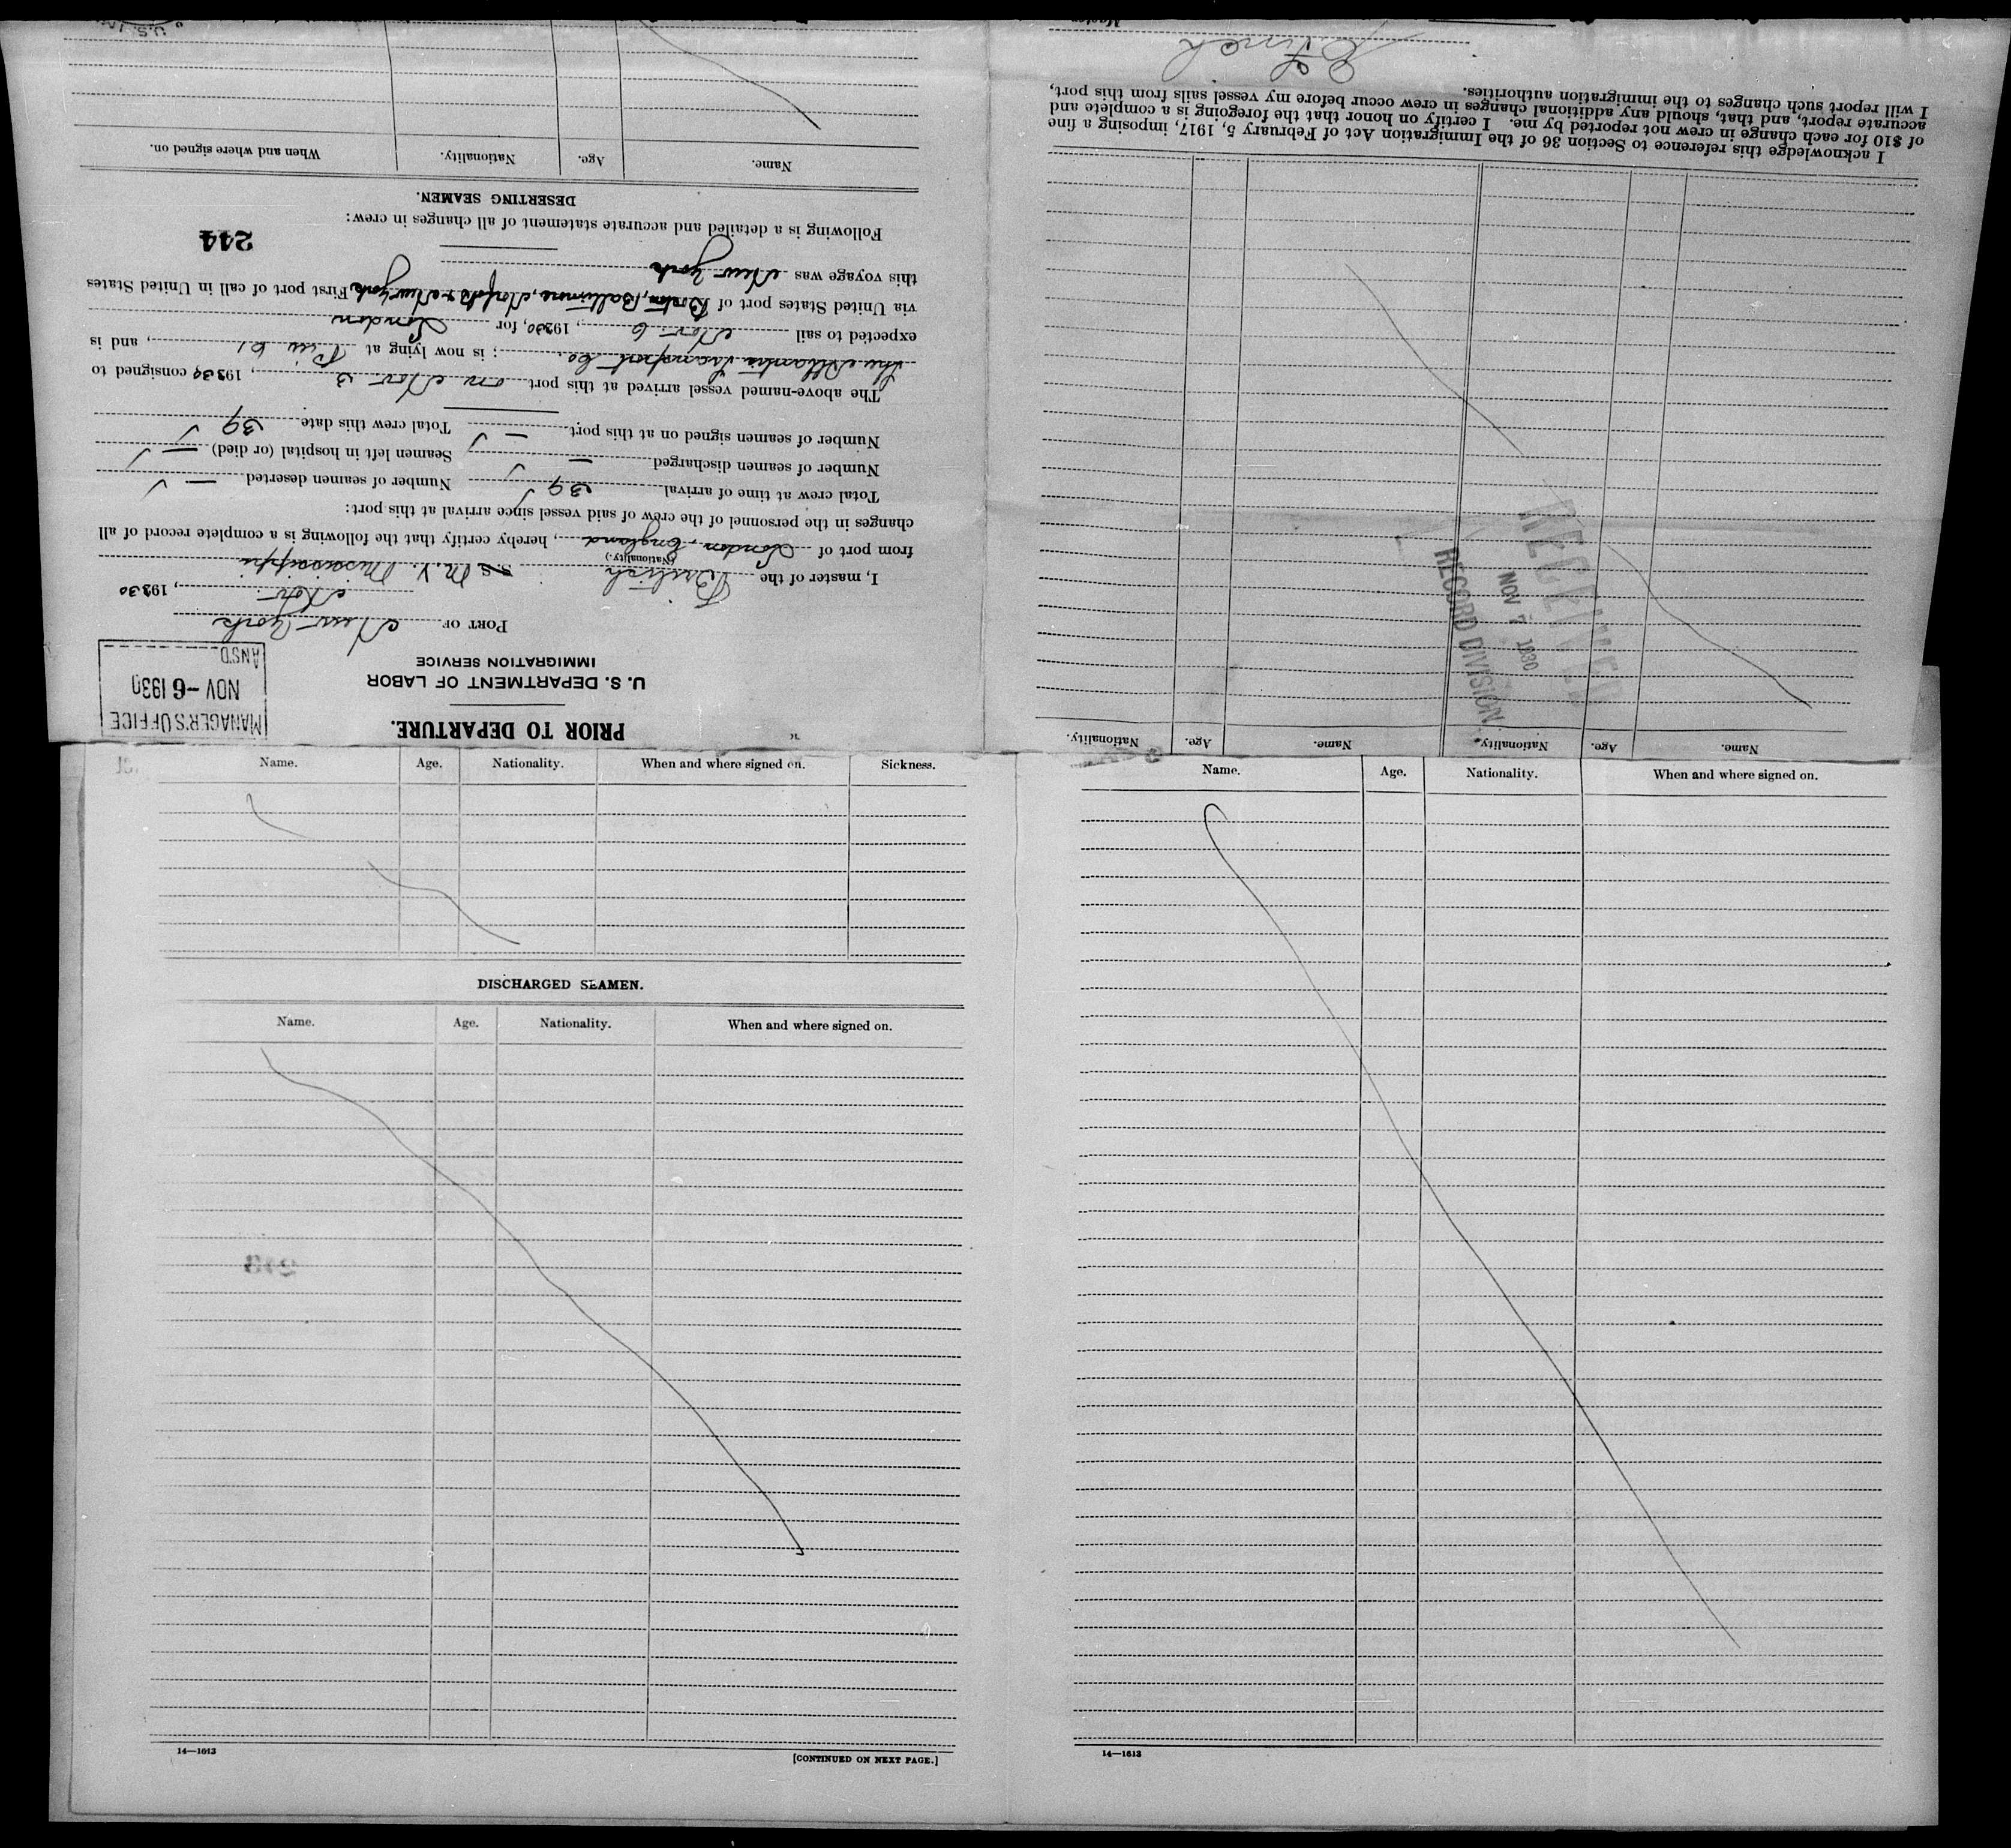 PRIOR TO DEPARTURE.
U. S. DEPARTMENT OF LABOR
IMMIGRATION SERVICE
MANAGER'S OFFICE
NOV -6 1930
ANS'D
PORT OF New York
Nov, 1930
I, master of the British S.S. M.V. Mississippi
(Nationality.)
from port of London, England, hereby certify that the following is a complete record of all
changes in the personnel of the crew of said vessel since arrival at this port:
Total crew at time of arrival 39 Number of seamen deserted —
Number of seamen discharged — Seamen left in hospital (or died) —
Number of seamen signed on at this port — Total crew this date 39
The above-named vessel arrived at this port on Nov 3, 1930 consigned to
The Atlantic Transport Co.; is now lying at Pier 61, and is
expected to sail Nov 6, 1930, for London
via United States port of Boston, Baltimore, Norfolk & New York First port of call in United States
this voyage was New York
Following is a detailed and accurate statement of all changes in crew:
244
DESERTING SEAMEN.
Name. Age. Nationality. When and where signed on.
Name. Age. Nationality. Name. Age. Nationality.
RECEIVED
NOV 7 1930
RECORD DIVISION
I acknowledge this reference to Section 36 of the Immigration Act of February 5, 1917, imposing a fine
of $10 for each change in crew not reported by me. I certify on honor that the foregoing is a complete and
accurate report, and that, should any additional changes in crew occur before my vessel sails from this port,
I will report such changes to the immigration authorities.
Finch
Master
Name. Age. Nationality. When and where signed on. Sickness.
DISCHARGED SEAMEN.
Name. Age. Nationality. When and where signed on.
14—1613
[CONTINUED ON NEXT PAGE.]
Name. Age. Nationality. When and where signed on.
14—1613